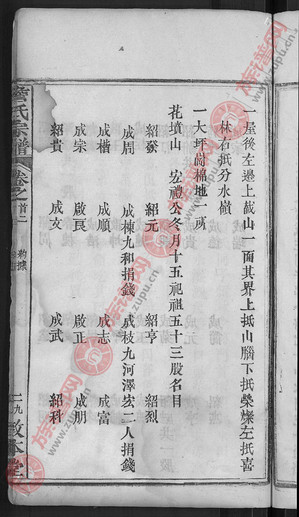 一屋後左邊上截山一面其界上抵山腦下抵柴㙡左抵喜
林右抵分水嶺
一大坪崗棉地一所
花墳山 宏禮公冬月十五祀祖五十三股名目
紹發 紹元 紹亨 紹烈
成周 成棟九和捐錢 成枝九河澤宏二人捐錢
成楷 成順 成志 成富
成宗 啟良 啟正 成朋
紹貴 成文 成武 紹科
氏宗譜 卷之首二 契據 二九 敦本堂
族谱网
www.zupu.cn